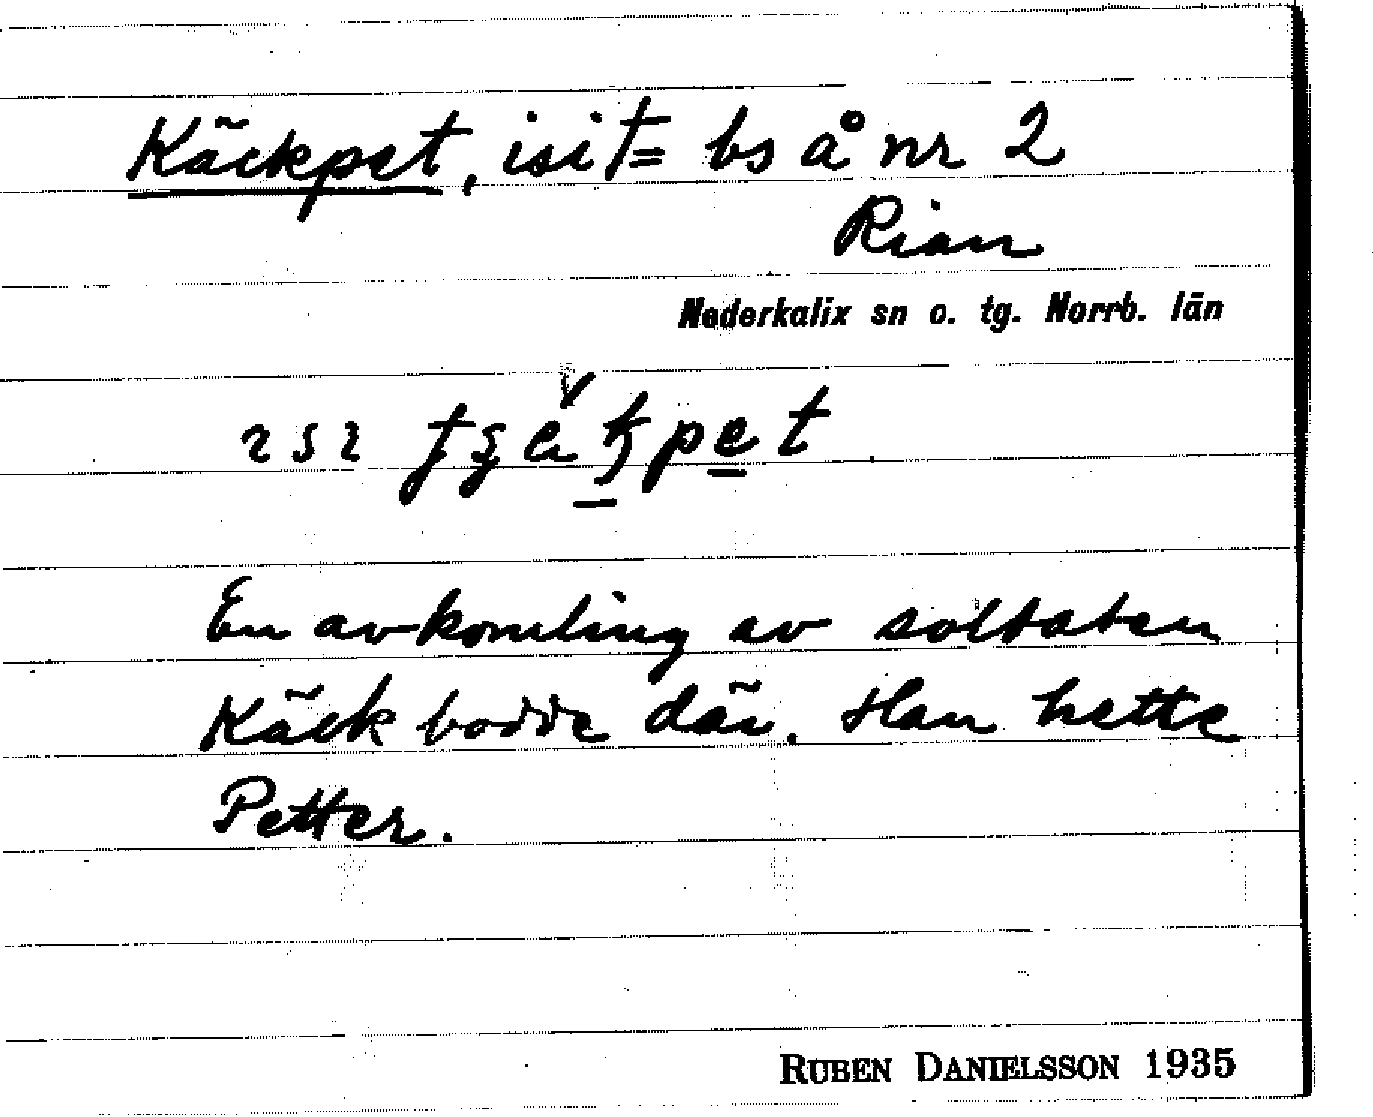 Käckpet, isit= bs å nr 2
Rian
Nederkalix sn o. tg. Norrb. län
En avkomling av soldaten
Käck bodde där. Han hette
Petter.
RUBEN DANIELSSON 1935